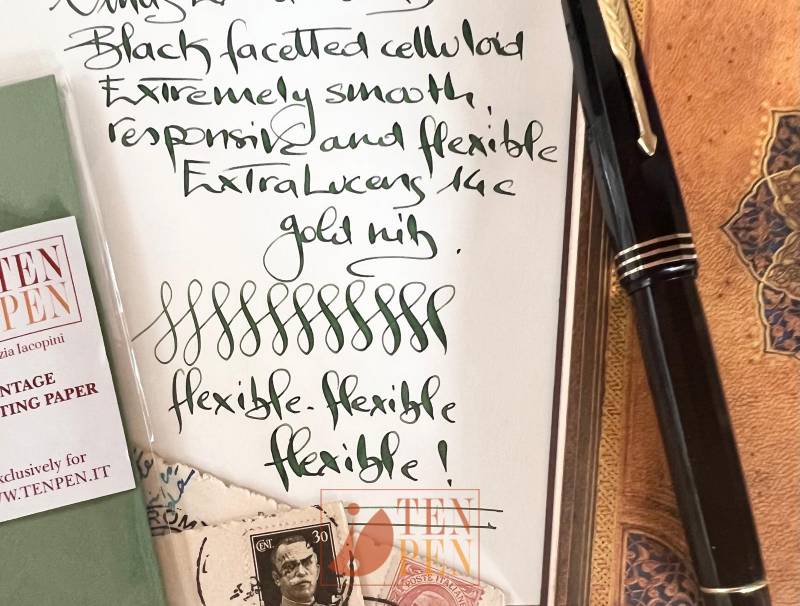 Black facetted celluloid
Extremely smooth,
responsive and flexible
ExtraLucens 14c
gold nib.
flexible. flexible
flexible!
TEN
PEN
zia Iacopini
NTAGE
TING PAPER
xclusively for
WW.TENPEN.IT
ROM
CENT. 30
POSTE ITALIANE
TEN
PEN